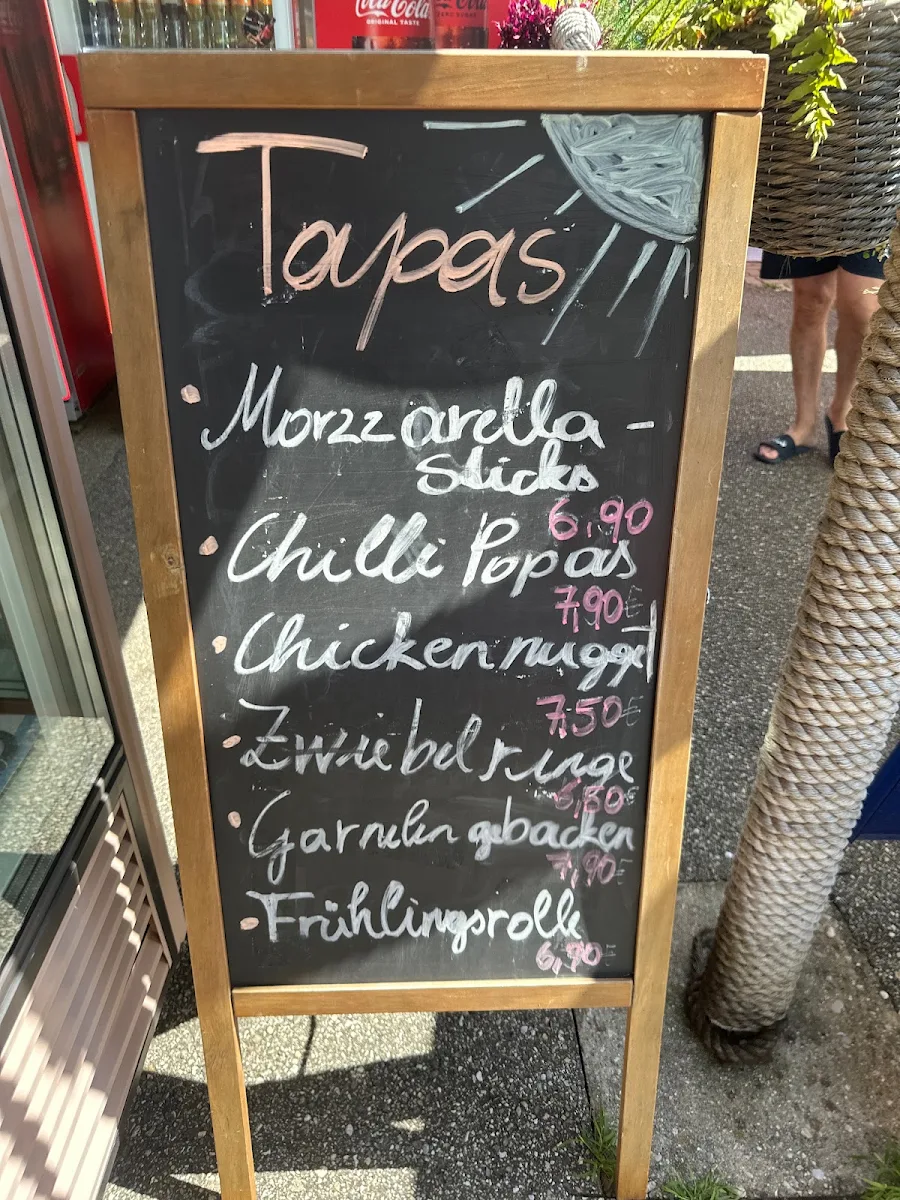 Coca-Cola
ORIGINAL TASTE
ZERO SUGAR
Tapas
Morzzarella -
Sticks
6,90
Chilli Popas
7,90€
Chicken nugget
7,50€
Zwiebelringe
6,50€
Garnelen gebacken
7,90€
Frühlingsrolle
6,90